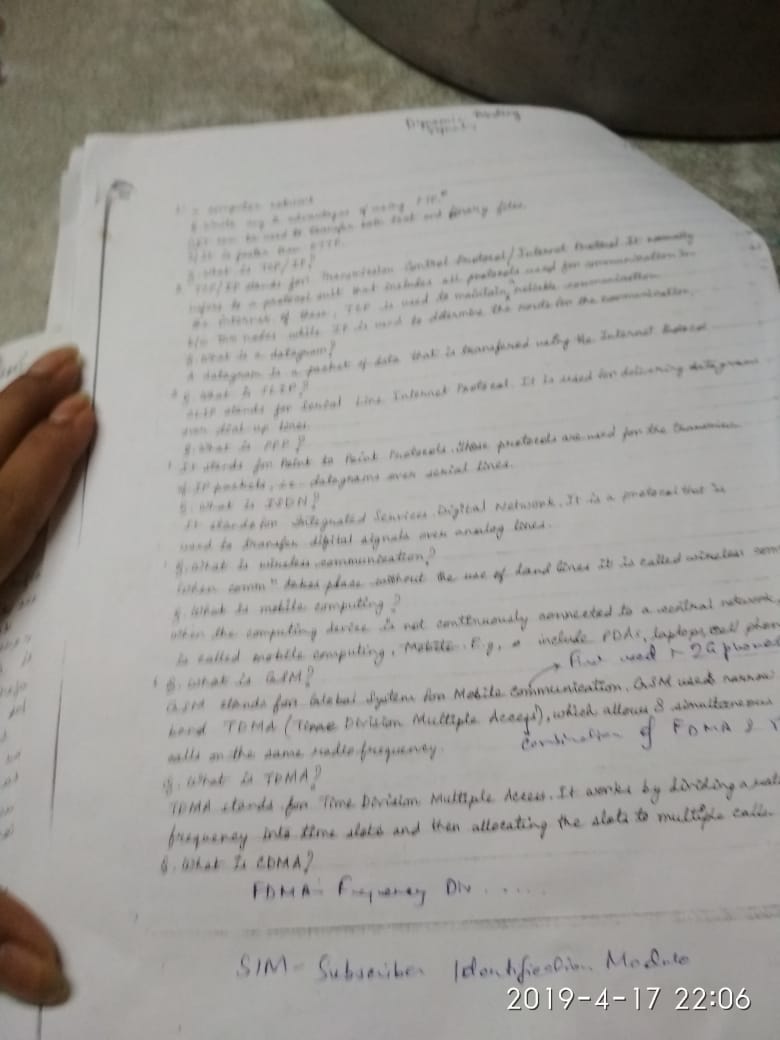 Dynamic Binding
computer network
Q. Write any 2 advantages of using FTP.
It can be used to transfer both text and binary files.
It is faster than HTTP.
Q. What is TCP/IP?
TCP/IP stands for Transmission Control Protocol/Internet Protocol. It normally
refers to a protocol suit that includes all protocols used for communication in
the internet. Of these, TCP is used to maintain reliable communication
b/w two nodes while IP is used to determine the route for the communication.
Q. What is a datagram?
A datagram is a packet of data that is transferred using the Internet Protocol
Q. What is SLIP?
SLIP stands for Serial Line Internet Protocol. It is used for delivering datagrams
over dial up lines.
Q. What is PPP?
It stands for Point to Point Protocols. These protocols are used for the transmission
of IP packets, i.e. datagrams over serial lines.
Q. What is ISDN?
It stands for Integrated Services Digital Network. It is a protocol that is
used to transfer digital signals over analog lines.
Q. What is wireless communication?
When commⁿ takes place without the use of land lines it is called wireless comm
Q. What is mobile computing?
When the computing device is not continuously connected to a central network,
is called mobile computing, Mobile. E.g, include PDAs, laptops, cell phon
First used in 2G phones
Q. What is GSM?
GSM stands for Global System for Mobile Communication. GSM uses narrow
band TDMA (Time Division Multiple Access), which allows 8 simultaneous
calls on the same radio frequency.
Combination of FDMA & T
Q. What is TDMA?
TDMA stands for Time Division Multiple Access. It works by dividing a radi
frequency into time slots and then allocating the slots to multiple calls.
Q. What Is CDMA?
FDMA - Frequency Div.....
SIM - Subscriber Identification Module
2019-4-17 22:06